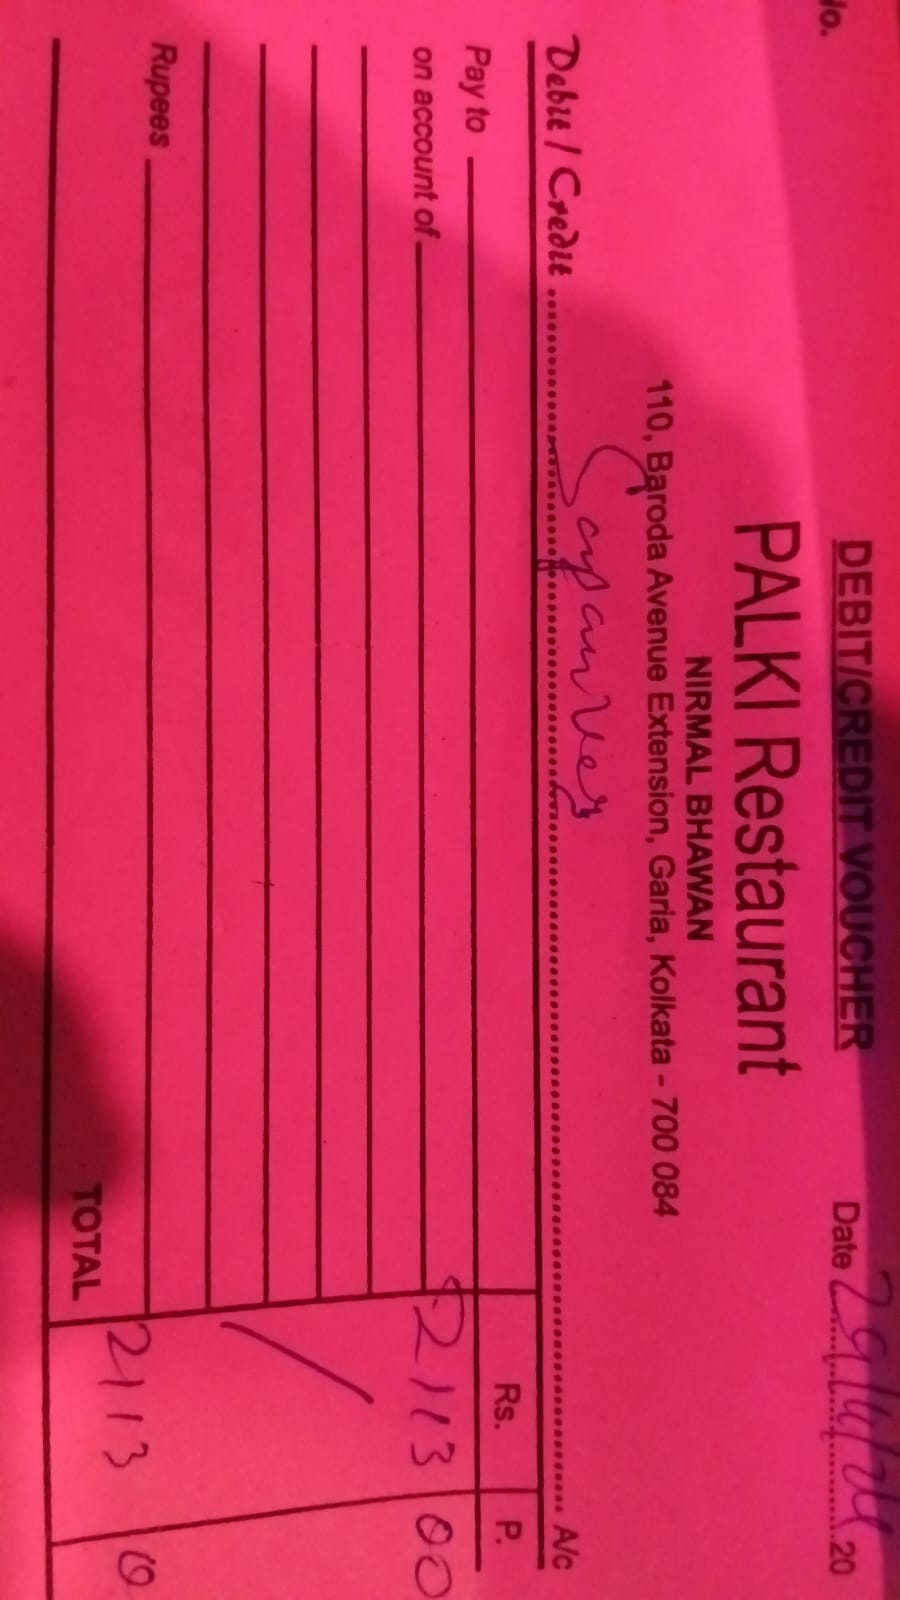 No.
DEBIT/CREDIT VOUCHER
PALKI Restaurant
NIRMAL BHAWAN
110, Baroda Avenue Extension, Garia, Kolkata - 700 084
Date 20
Debit / Credit A/c
Rs. P.
Pay to
on account of 2113 00
Rupees
TOTAL 2113 0